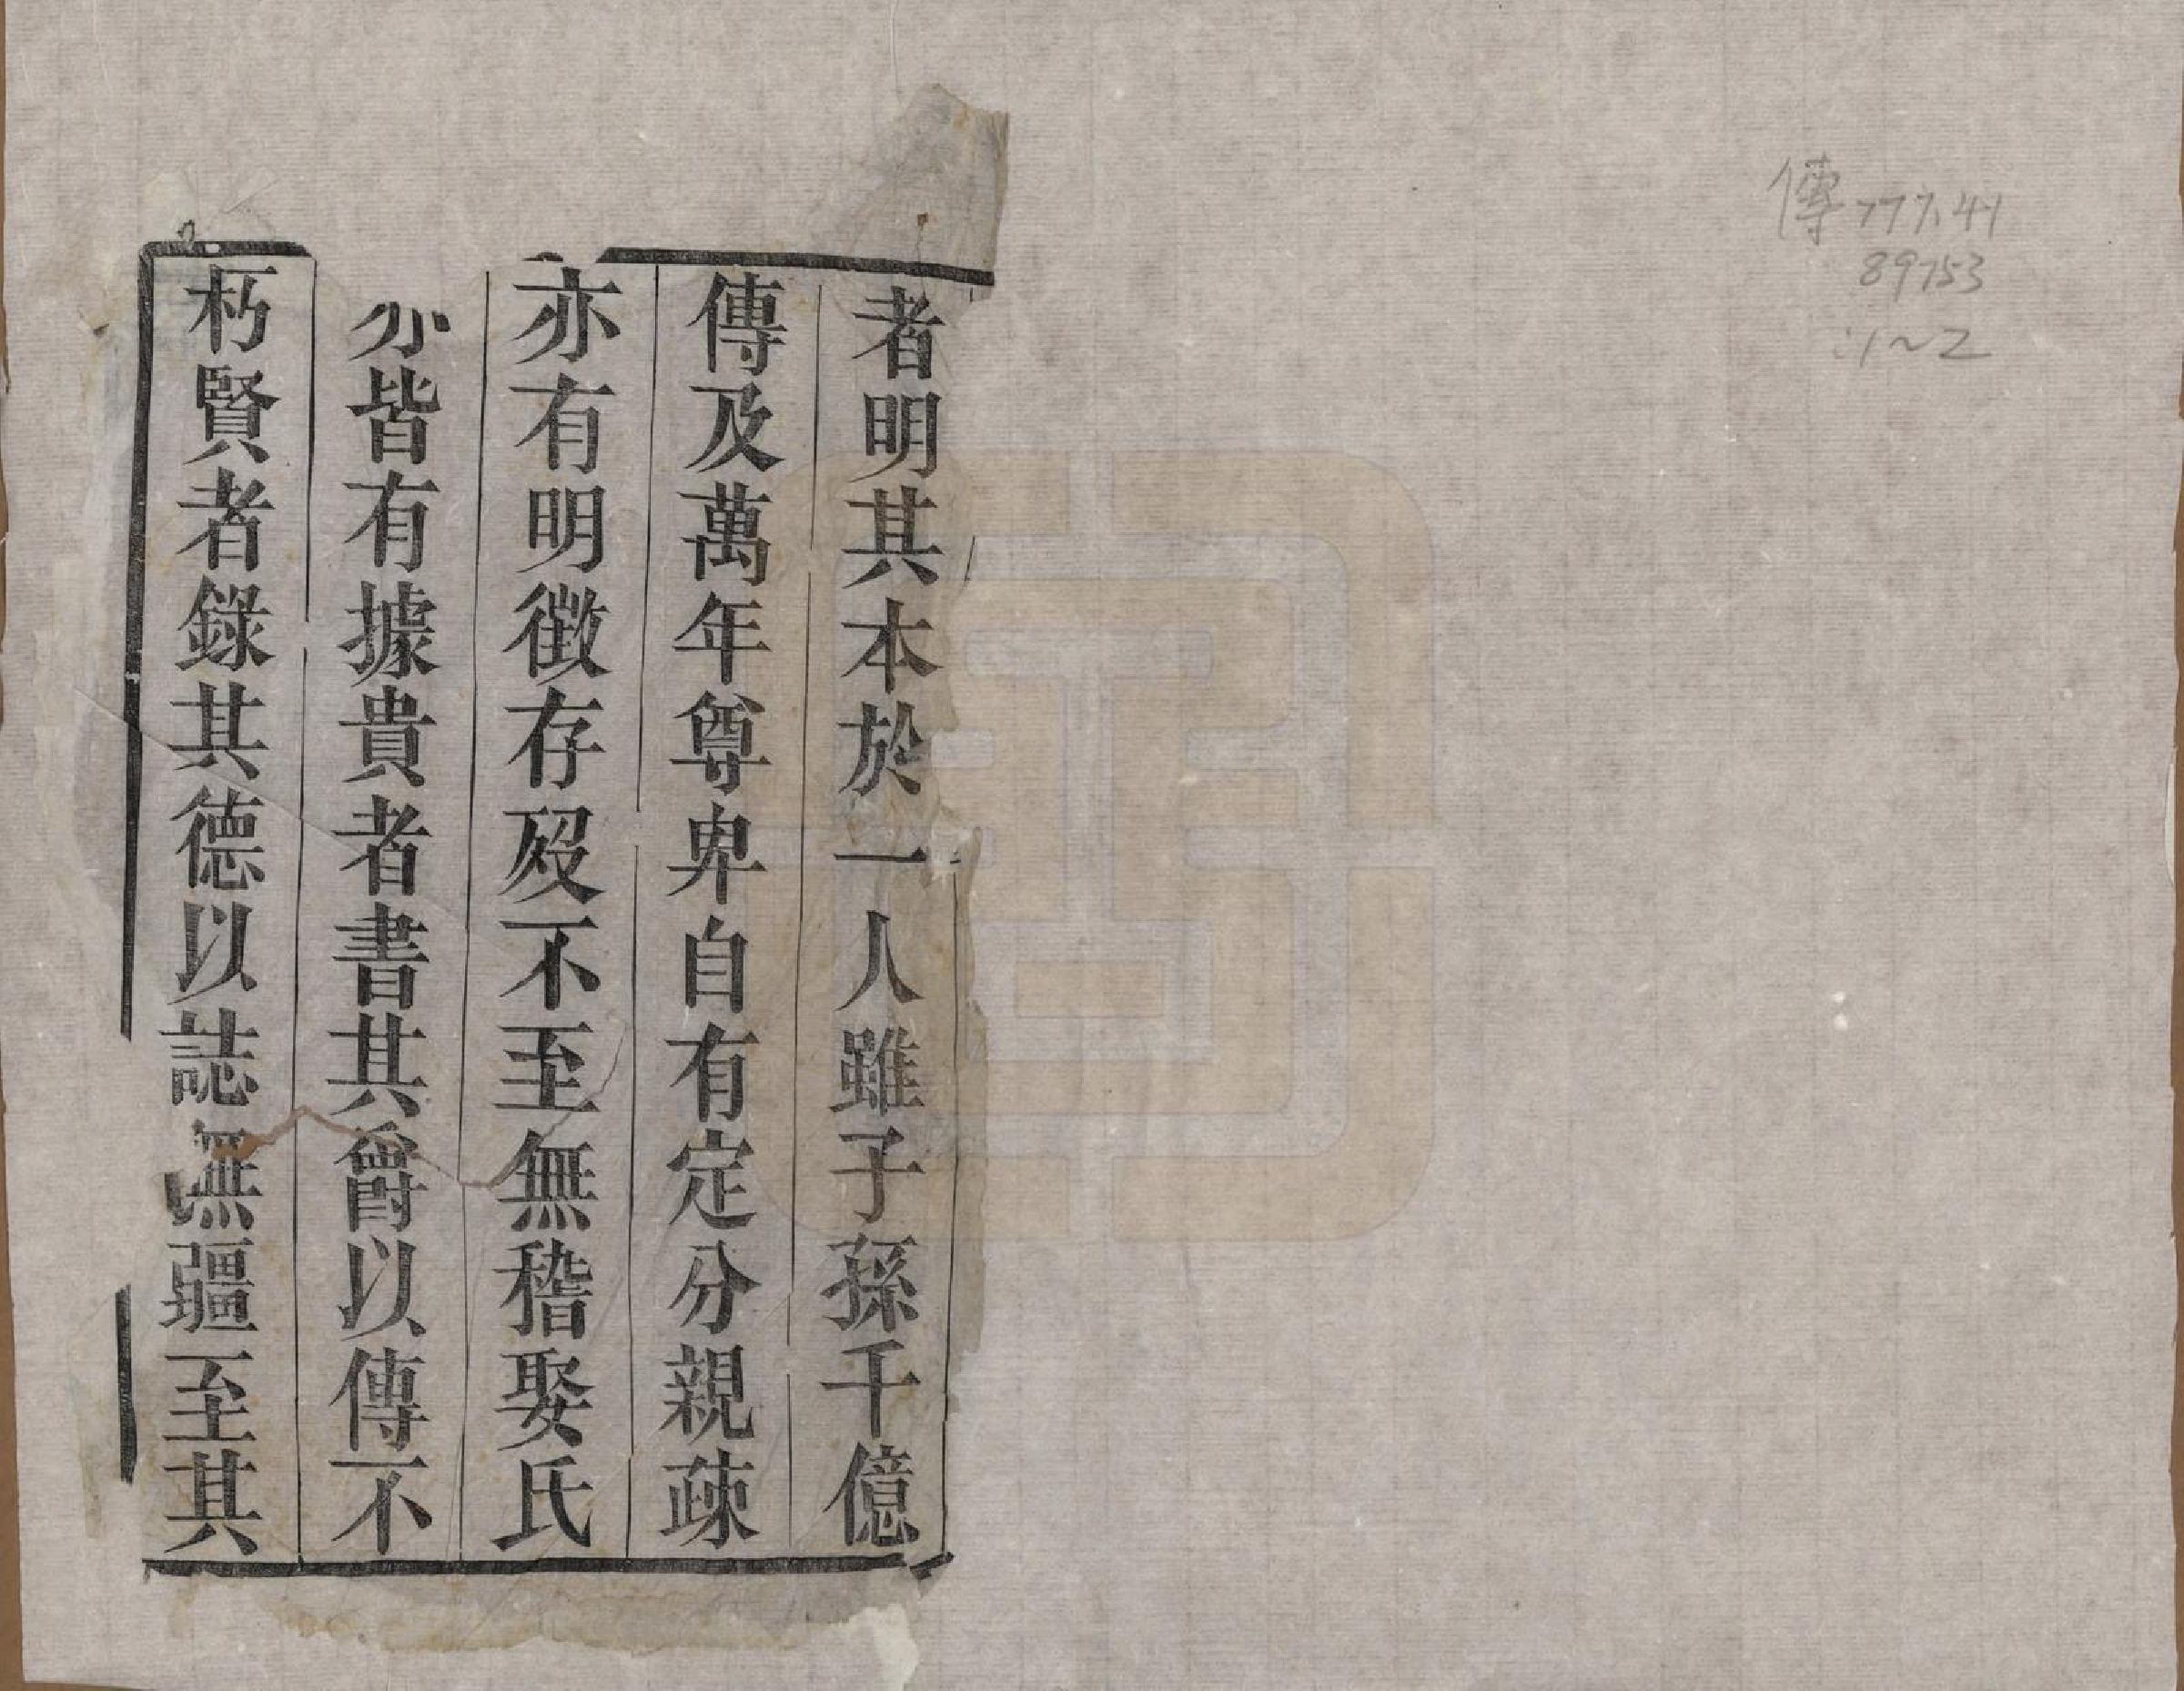 傳777.41
89753
:1~2
者明其本於一人雖子孫千億
傳及萬年尊卑自有定分親疎
亦有明徵存殁不至無稽娶氏
皆有據貴者書其爵以傳不
朽賢者錄其德以誌無疆至其